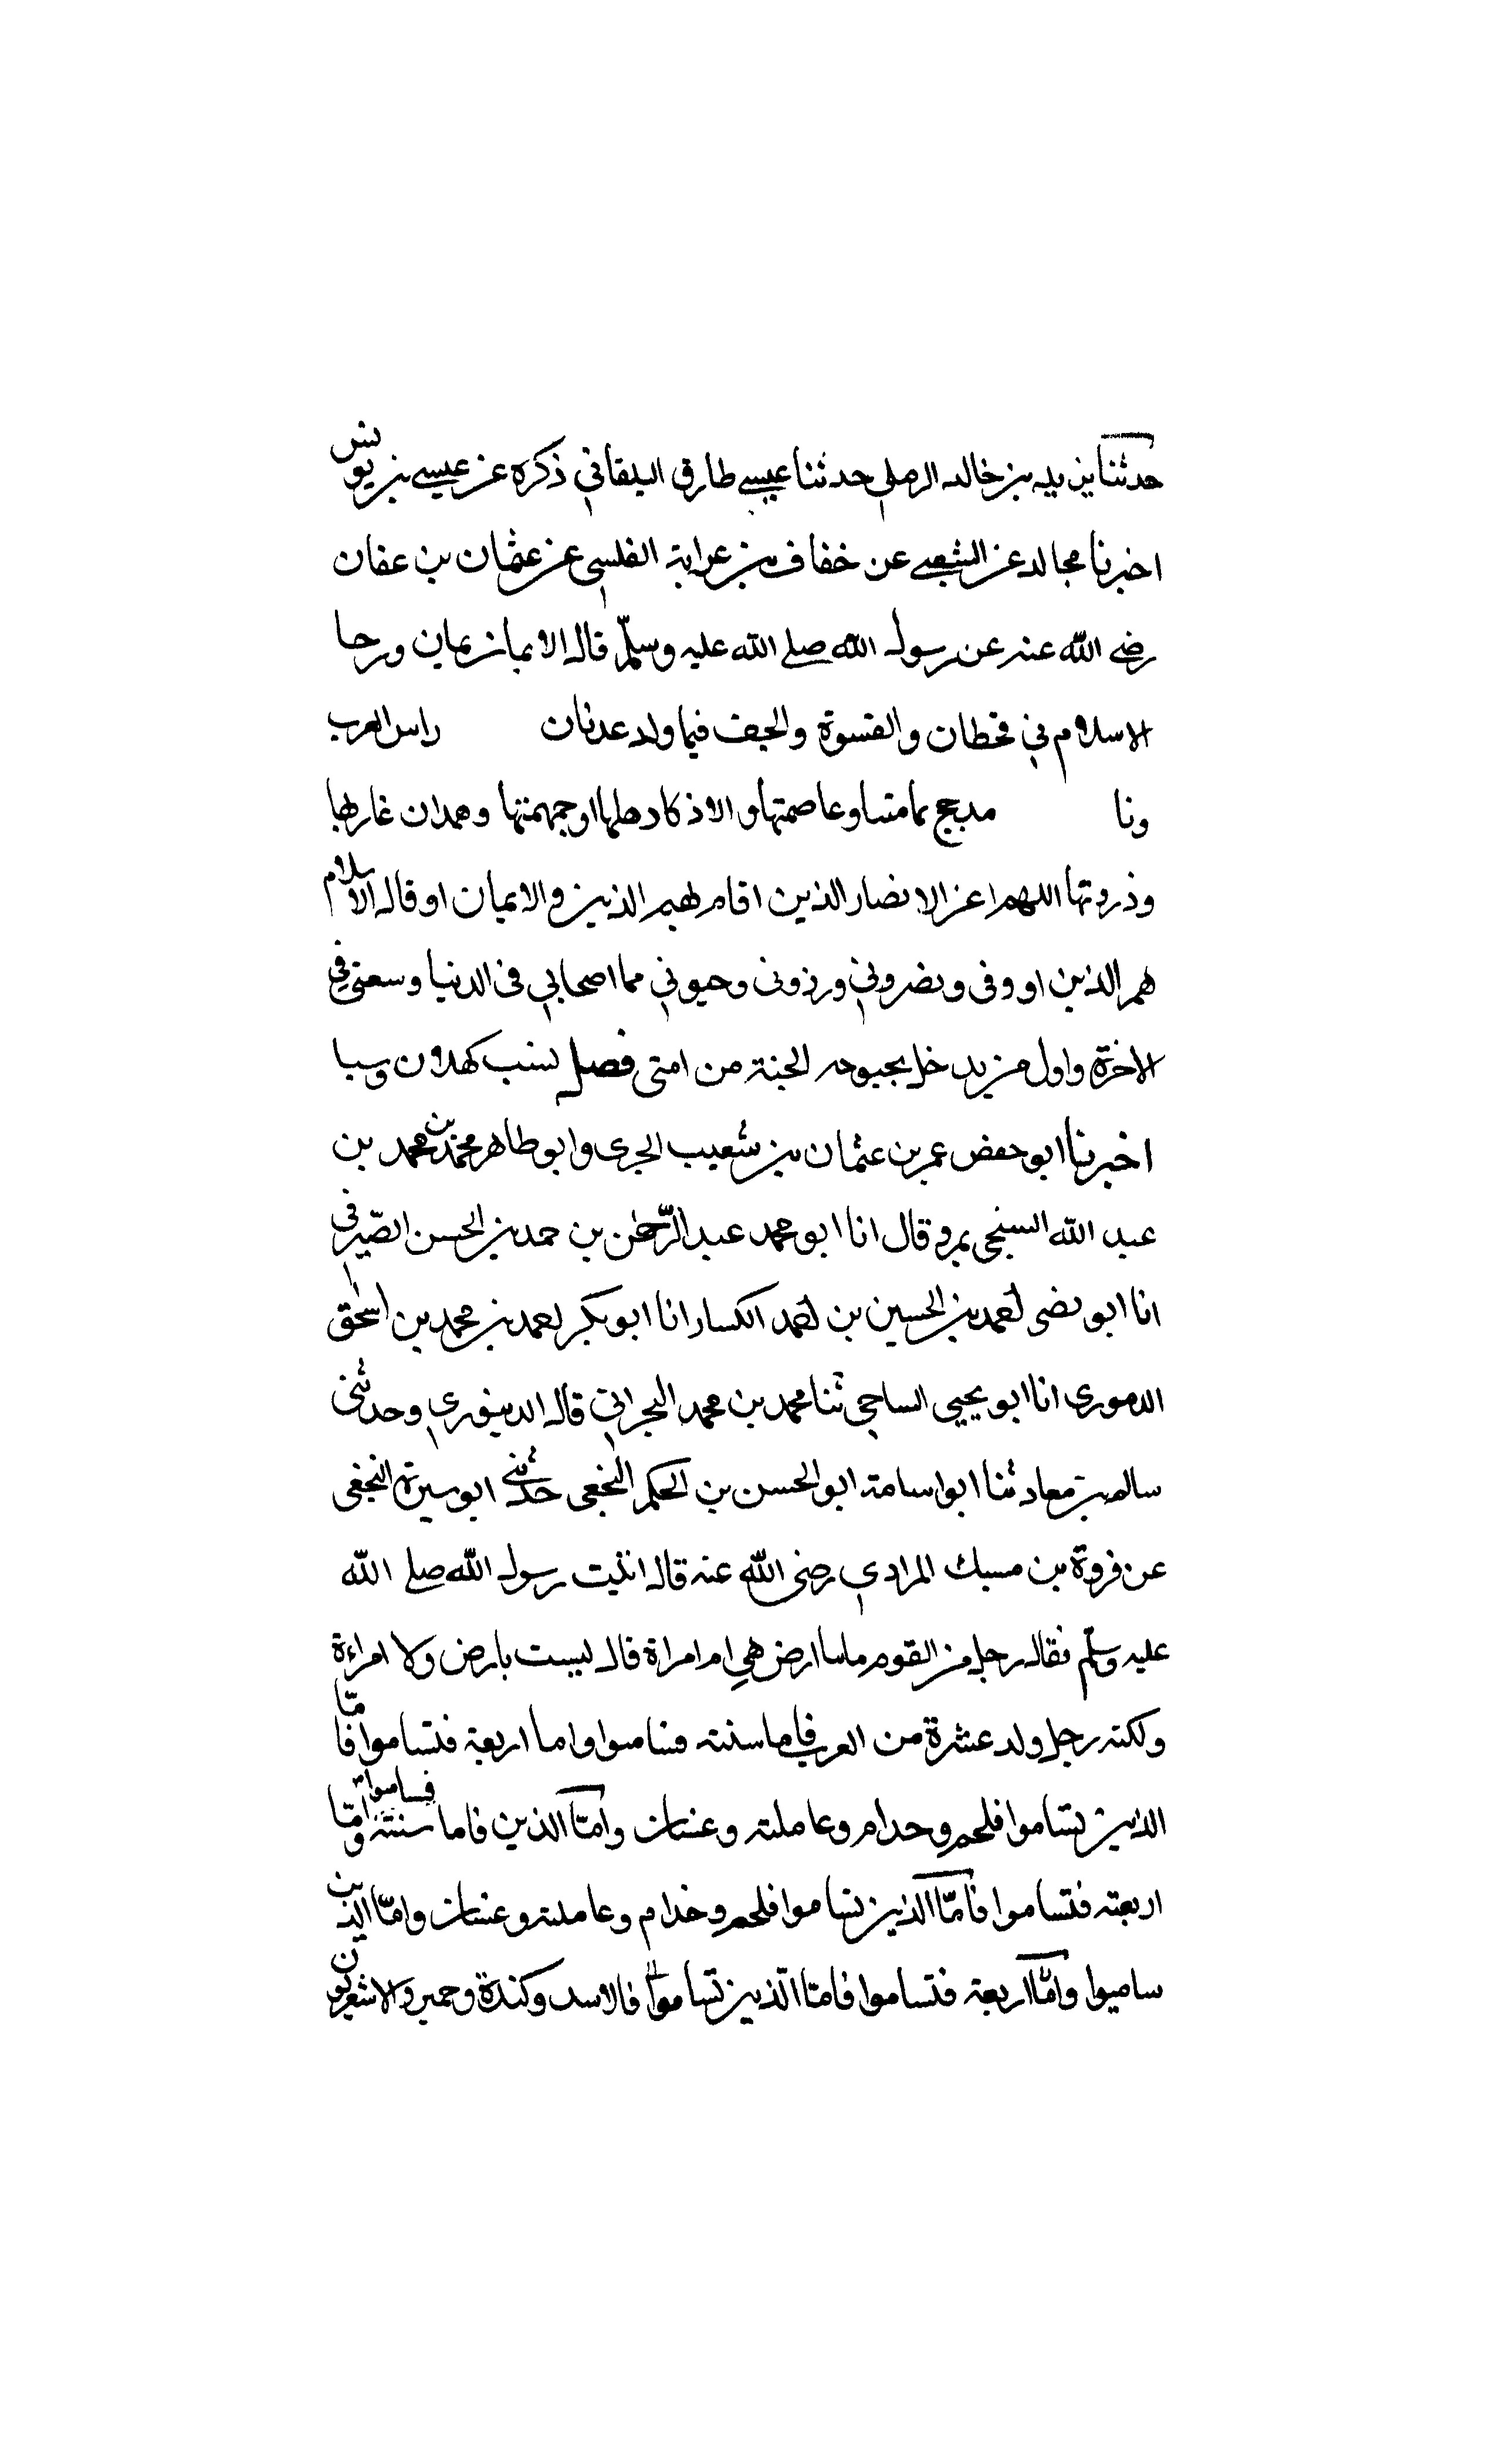 حدثنا يزيد بن خالد الرملي حدثنا عيسى طارق البلقاني ذكره عن عيسى بن يونس
اخبرنا مجالد عن الشعبي عن خفاف بن عرابة العلسي عن عثمان بن عفان
رضي الله عنه عن رسول الله صلى الله عليه وسلم قال الايمان يمان ورحا
الاسلام في قحطان والقسوة والجفف فيما ولد عدنان راس العرب
ونا مدجج هامتها وعاصمتها والازد كاهلها وجمجمتها وهمدان غاربها
وذروتها اللهم اعز الانصار الذين اقام لهم الذين والايمان او قال الاسلام
هم الذين اووني ونصروني ورزوني وحيوني مما اصحابي في الدنيا وسعتي في
الاخرة واول من يدخل بحبوحه الجنة من امتي فصل نسب كهلان وسبا
اخبرنا ابو حفض عمر بن عثمان بن شعيب الجزى وابو طاهر محمد بن محمد بن
عبد الله السنجي بمرو قال انا ابو محمد عبد الرحمن بن حمد بن الحسن الصيرفي
انا ابو نضى احمد بن الحسين بن احمد الكسار انا ابو بكر احمد بن محمد بن اسحق
الدموري انا ابو يحيى الساجي ثنا محمد بن محمد البحراني قال الدينوري وحدثني
سالم بن معاد ثنا ابو اسامة ابو الحسن بن الحكم النخعي حدثني ابو سبرة النجفى
عن فروة بن مسبك المرادي رضى الله عنه قال اتيت رسول الله صلى الله
عليه وسلم فقال رجل من القوم ماسبا ارض هي ام امراة قال ليست بارض ولا امراءة
ولكنه رجل ولد عشرة من العرب فاما ستته فتيامنوا واما اربعة فتساموا فامّا
الذين تساموا فلحم وحدام وعاملة وغسان وامّا الذين فاما ستته فساموا وامّا
اربعته فتساموا فامّا الذين تساموا فلحم وخدام وعاملة وغسان وامّا الذين
ساميوا وامّا اربعة فتساموا فامّا الّذين تساموا فالاسد وكندة وحمير والاشعريون